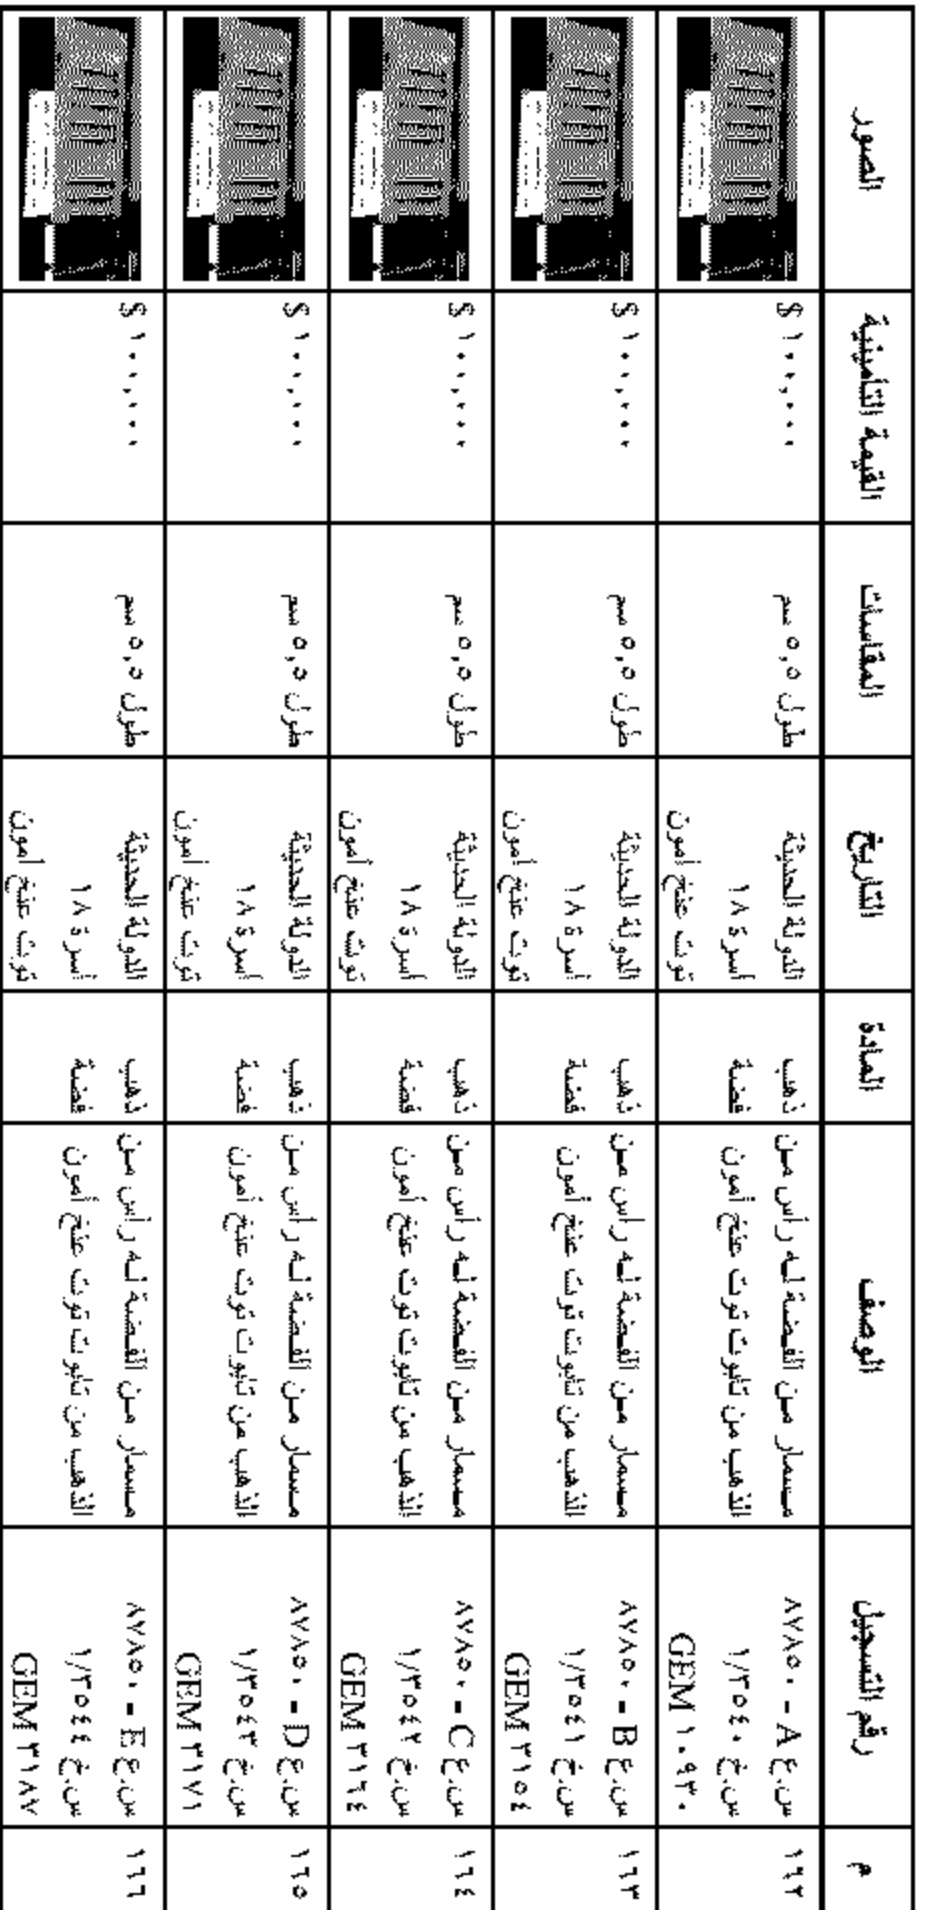 م
رقم التسجيل
الوصف
المادة
التاريخ
المقاسات
القيمة التأمينية
الصور
١٦٢
س.ع A - ٨٧٨٥٠
س.خ ١/٣٥٤٠
GEM ١٠٩٣٠
مسمار من الفضة له رأس من
الذهب من تابوت توت عنخ أمون
ذهب
فضة
الدولة الحديثة
أسرة ١٨
توت عنخ أمون
طول ٥,٥ سم
١٠٠,٠٠٠ $
١٦٣
س.ع B - ٨٧٨٥٠
س.خ ١/٣٥٤١
GEM ٣١٥٤
مسمار من الفضة له رأس من
الذهب من تابوت توت عنخ أمون
ذهب
فضة
الدولة الحديثة
أسرة ١٨
توت عنخ أمون
طول ٥,٥ سم
١٠٠,٠٠٠ $
١٦٤
س.ع C - ٨٧٨٥٠
س.خ ١/٣٥٤٢
GEM ٣١٦٤
مسمار من الفضة له رأس من
الذهب من تابوت توت عنخ أمون
ذهب
فضة
الدولة الحديثة
أسرة ١٨
توت عنخ أمون
طول ٥,٥ سم
١٠٠,٠٠٠ $
١٦٥
س.ع D - ٨٧٨٥٠
س.خ ١/٣٥٤٣
GEM ٣١٧١
مسمار من الفضة له رأس من
الذهب من تابوت توت عنخ أمون
ذهب
فضة
الدولة الحديثة
أسرة ١٨
توت عنخ أمون
طول ٥,٥ سم
١٠٠,٠٠٠ $
١٦٦
س.ع E - ٨٧٨٥٠
س.خ ١/٣٥٤٤
GEM ٣١٨٧
مسمار من الفضة له رأس من
الذهب من تابوت توت عنخ أمون
ذهب
فضة
الدولة الحديثة
أسرة ١٨
توت عنخ أمون
طول ٥,٥ سم
١٠٠,٠٠٠ $